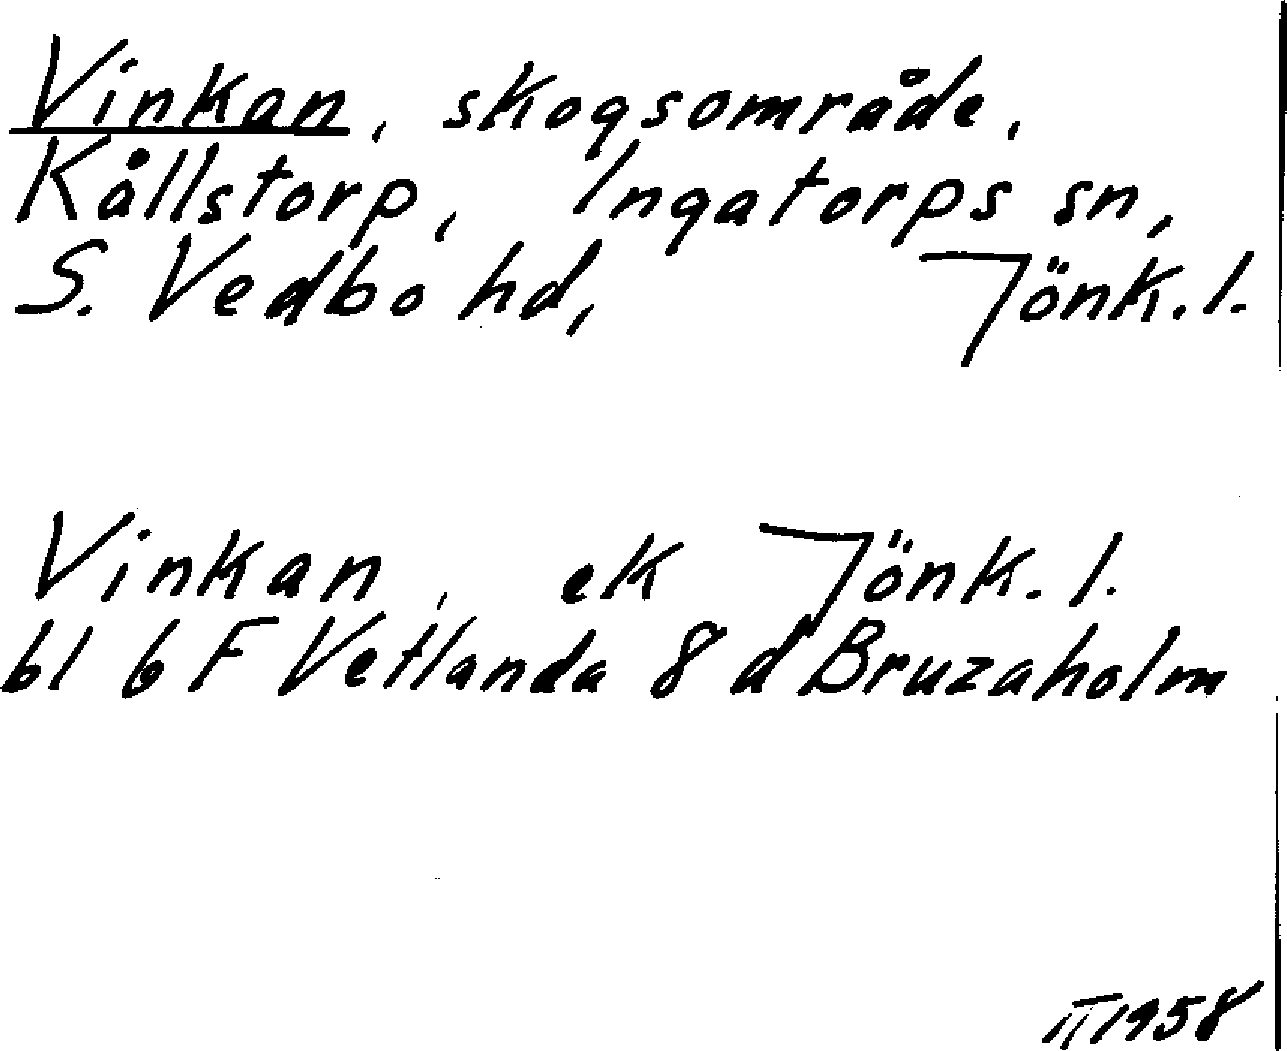 Vinkan, skogsområde,
Kållstorp, Ingatorps sn,
S. Vedbo hd, Jönk. l.
Vinkan, ek Jönk. l.
bl 6 F Vetlanda 8 d Bruzaholm
II 1958